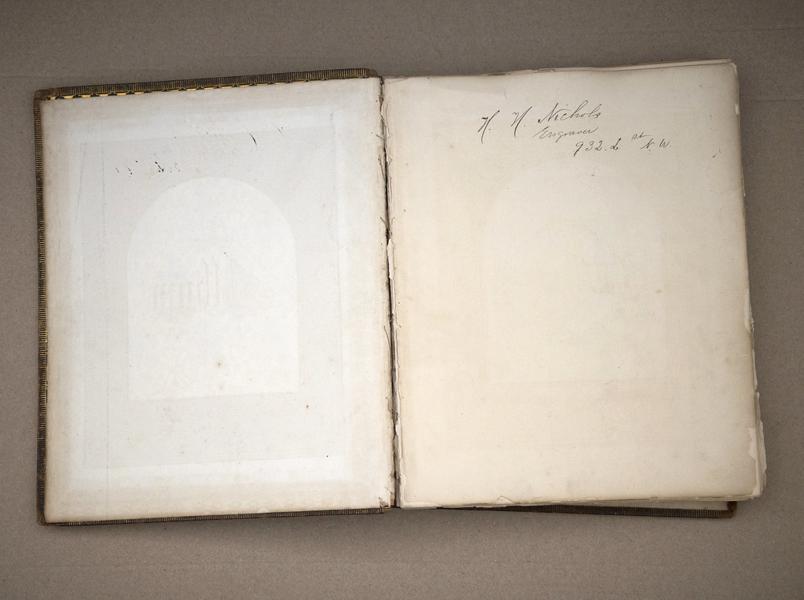 H. H. Nichols
Engraver
932. L st N. W.